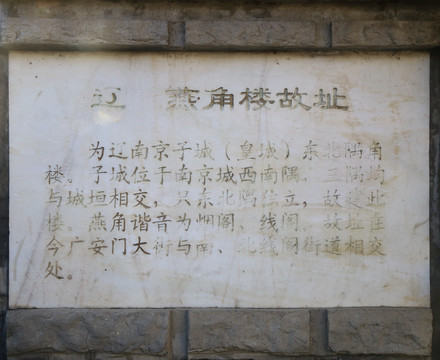 辽 燕角楼故址
为辽南京子城（皇城）东北隅角
楼。子城位于南京城西南隅，三隅均
与城垣相交，只东北隅独立，故建此
楼。燕角谐音为烟阁、线阁。故址在
今广安门大街与南、北线阁街道相交
处。